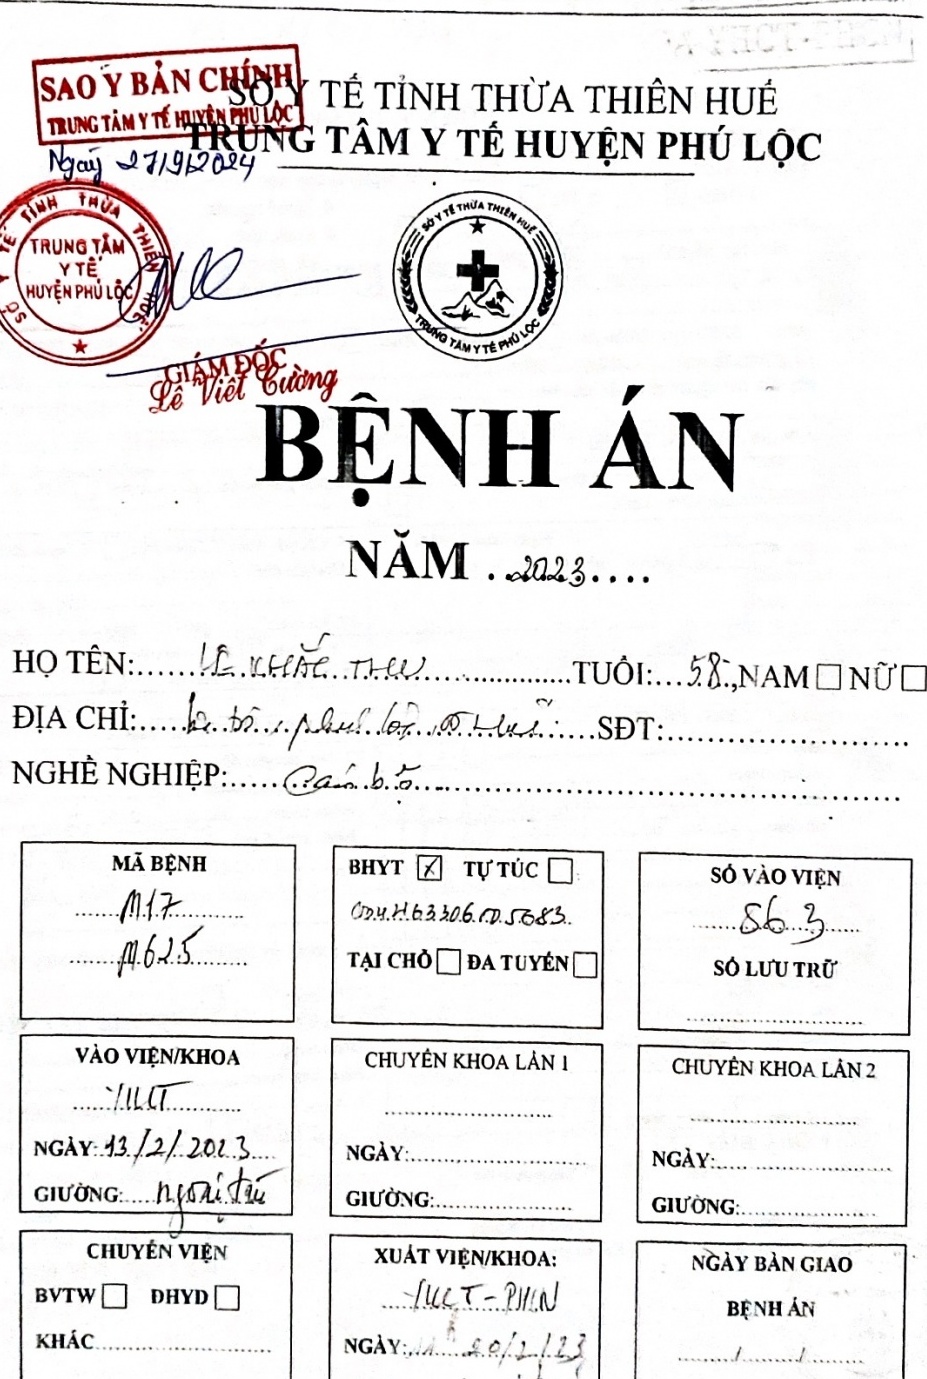 SAO Y BẢN CHÍNH
TRUNG TÂM Y TẾ HUYỆN PHÚ LỘC
Ngày 27/9/2024
SỞ Y TẾ TỈNH THỪA THIÊN HUẾ
TRUNG TÂM Y TẾ HUYỆN PHÚ LỘC
SỞ Y TẾ TỈNH THỪA THIÊN HUẾ
TRUNG TÂM
Y TẾ
HUYỆN PHÚ LỘC
SỞ Y TẾ THỪA THIÊN HUẾ
TRUNG TÂM Y TẾ PHÚ LỘC
GIÁM ĐỐC
Lê Viết Cường
BỆNH ÁN
NĂM ..2023....
HỌ TÊN:......LÊ KHẮC THU................TUỔI:...58.,NAM □ NỮ □
ĐỊA CHỈ:.... phú lộc Huế......SĐT:........................
NGHỀ NGHIỆP:.....Cán bộ....................................
MÃ BỆNH
M17
M62.5
BHYT ☒ TỰ TÚC □
CD4.H.63306.CD.5683.
TẠI CHỖ □ ĐA TUYẾN □
SỐ VÀO VIỆN
563
SỐ LƯU TRỮ
VÀO VIỆN/KHOA
YHCT
NGÀY: 13/2/2023
GIƯỜNG: ngoại trú
CHUYÊN KHOA LẦN 1
NGÀY:
GIƯỜNG:
CHUYÊN KHOA LẦN 2
NGÀY:
GIƯỜNG:
CHUYỂN VIỆN
BVTW □ ĐHYD □
KHÁC
XUẤT VIỆN/KHOA:
YHCT-PHCN
NGÀY: 20/2/23
NGÀY BÀN GIAO
BỆNH ÁN
....../....../......